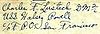 Charles F. Lusteck DM2c
U.S.S. Bailey
c/o P.O. San Francisco